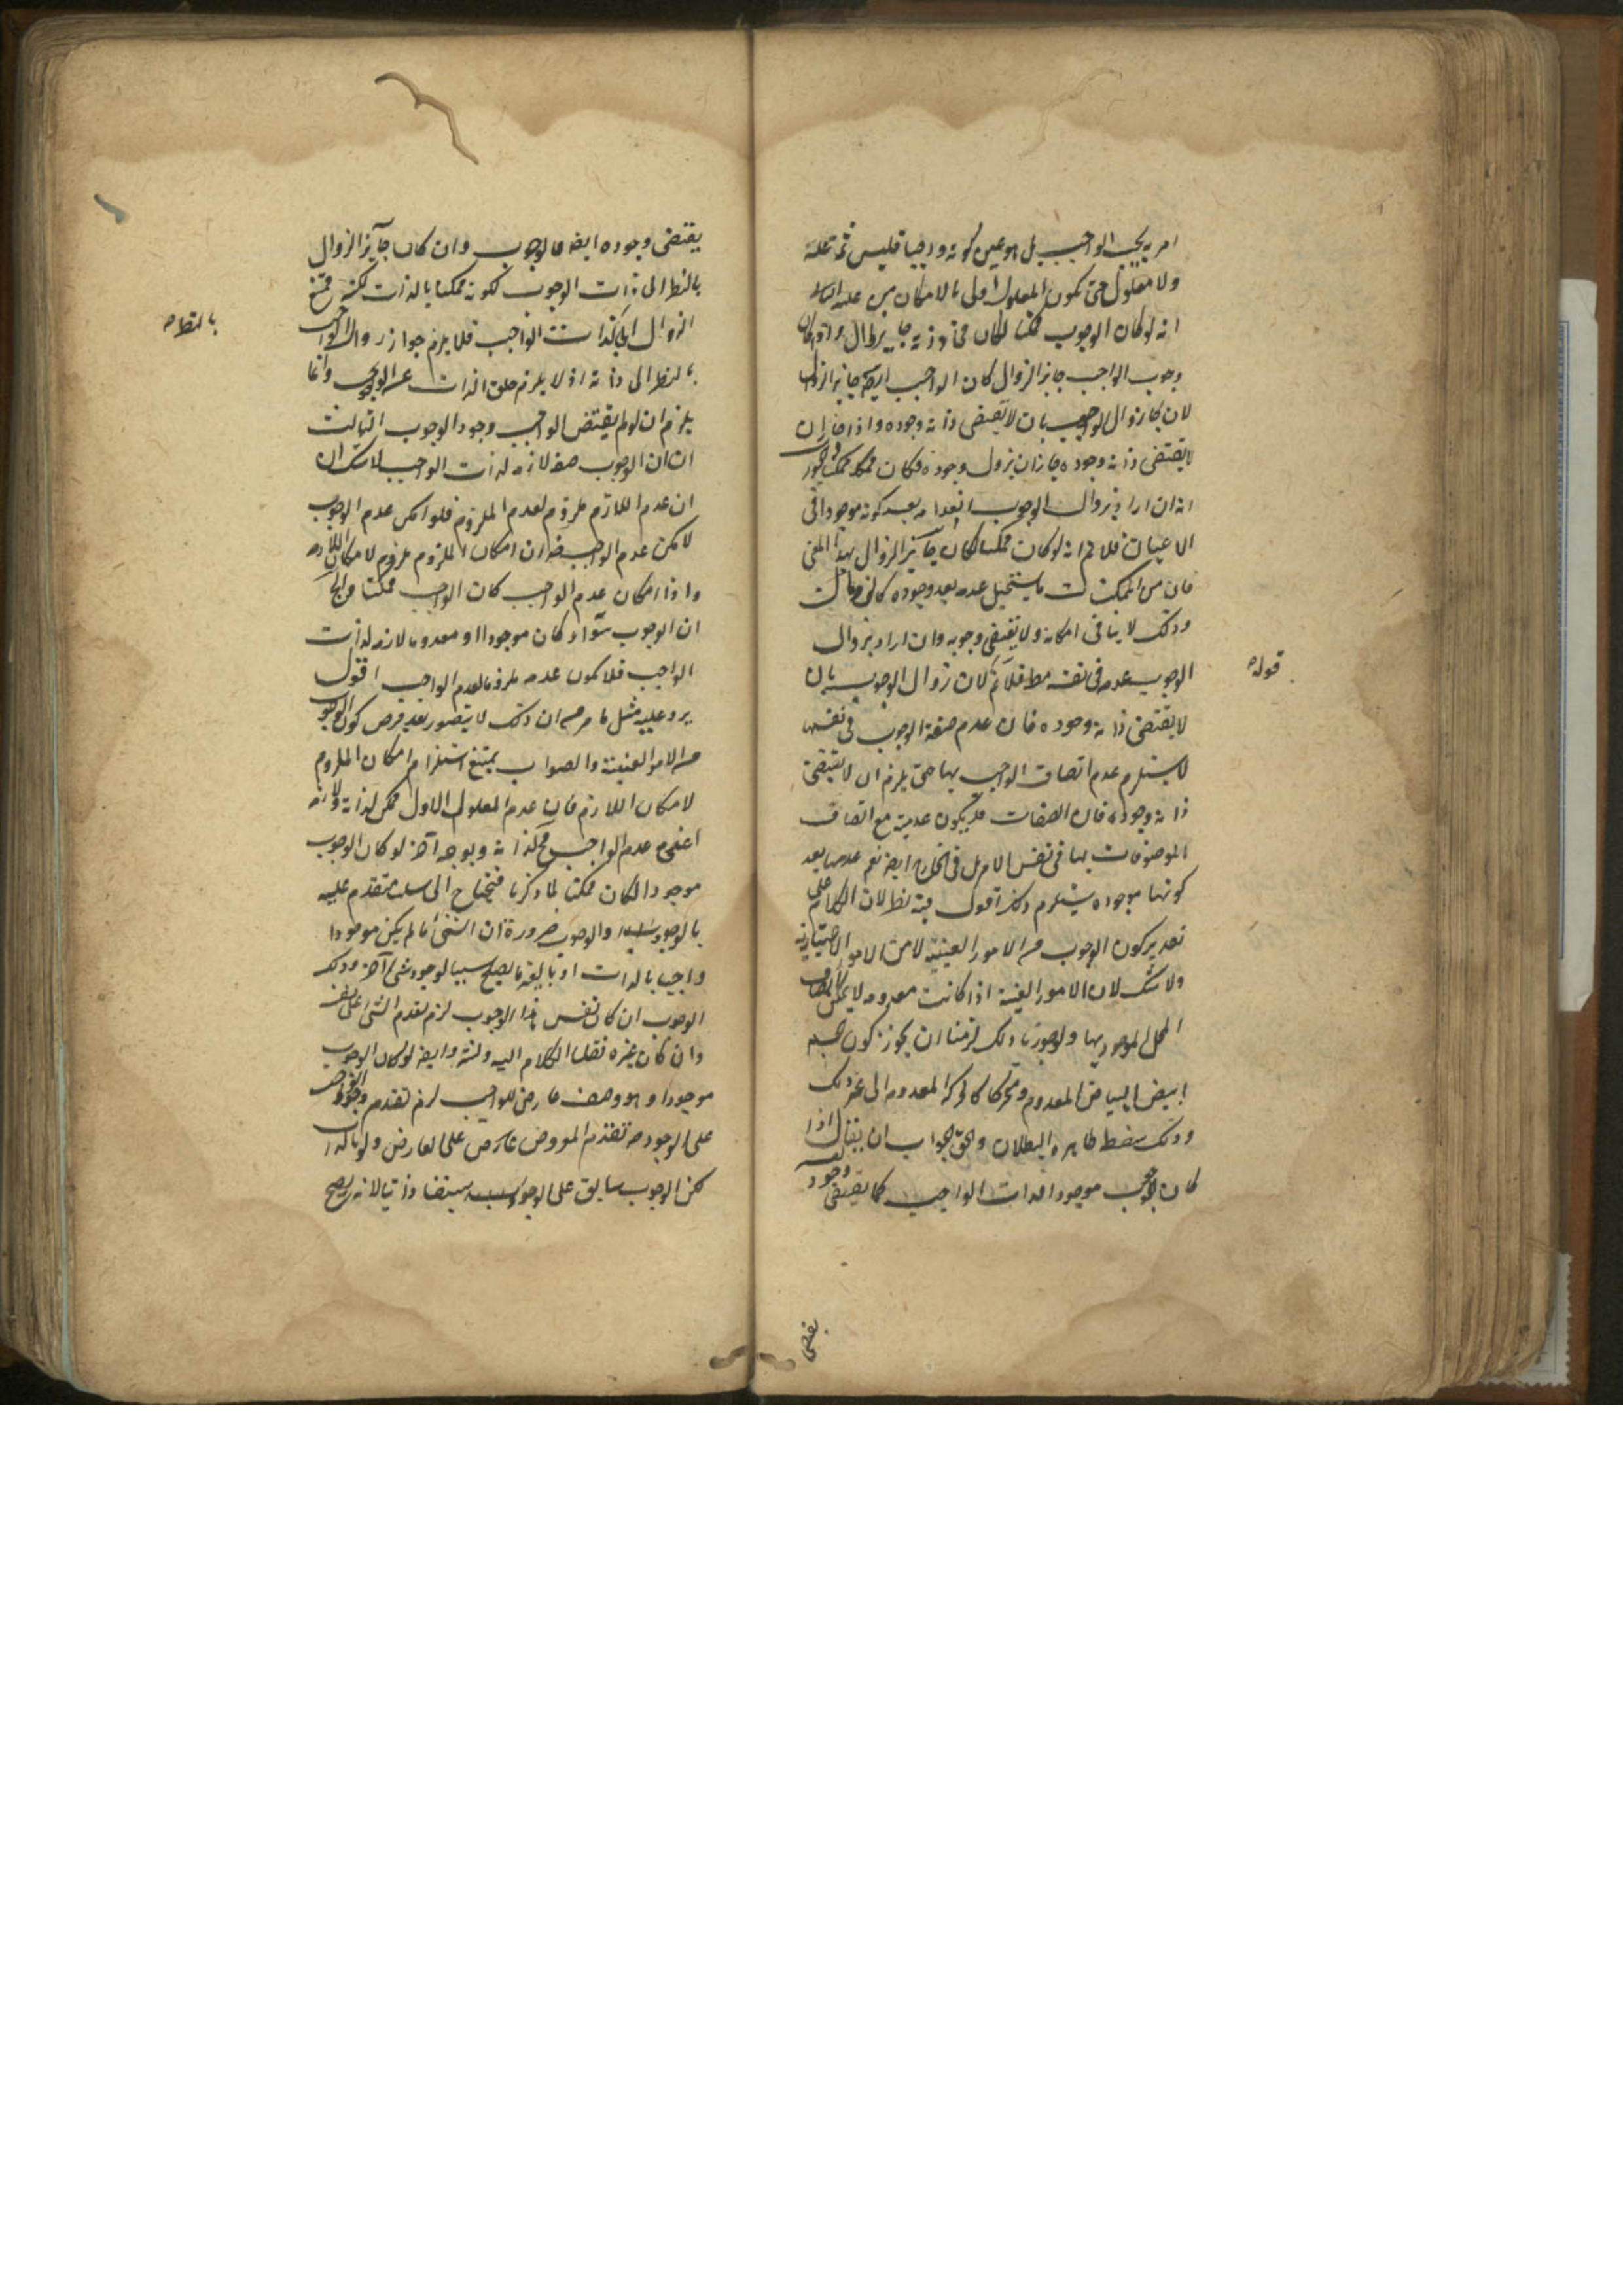 امر يجب الواجب بل هو عين كونه واجبا فليس ثمة علة
ولا معلول حتى يكون المعلول اولى بالامكان من علته الثالث
انه لو كان الوجوب ممكنا لكان في ذاته جايز الزوال ولو كان
وجوب الواجب جايز الزوال كان الواجب ايضا جايز الزوال
لان زوال الوجوب بان لا يقتضى ذاته وجوده واذا جاز ان
لا يقتضى ذاته وجوده جاز ان يزول وجوده فكان ممكنا
انه ان اراد بزوال الوجوب انعدامه بعد كونه موجودا فى
الاعيان فلا نم انه لو كان ممكنا لكان جايز الزوال بهذا المعنى
فان من الممكنات ما يستحيل عدمه بعد وجوده كالزمان
وذلك لا ينافى امكانه ولا يقتضى وجوبه وان اراد بزوال
الوجوب عدمه فى نفسه مط فلا نم ان زوال الوجوب بان
لا يقتضى ذاته وجوده فان عدم صفة الوجوب فى نفسها
لا يستلزم عدم اتصاف الواجب بها حتى يلزم ان لا يقتضى
ذاته وجوده فان الصفات قد يكون عدمية مع اتصاف
الموصوفات بها فى نفس الامر بل فى الخارج ايضا نعم عدمها بعد
كونها موجوده يستلزم ذلك اقول فيه نظر لان الكلام على
تقدير كون الوجوب من الامور العينية لا من الامور الاعتبارية
ولا شك لان الامور العينية اذا كانت معدومة لا يمكن اتصاف
المحل الموجود بها ولو جوزنا ذلك لزمنا ان يجوز كون الجسم
ابيض بالبياض المعدوم ومتحركا بالحركة المعدومه الى غير ذلك
وذلك سفسطة ظاهره البطلان والحق فى الجواب ان يقال اذا
كان الوجوب موجودا فذات الواجب كما يقتضى وجود نفسه
قوله
يقتضى
يقتضى وجوده ايضا فالوجوب وان كان جايز الزوال
بالنظر الى ذات الوجوب لكونه ممكنا بالذات لكنه ممتنع
الزوال بالنظر لذات الواجب فلا يلزم جواز زوال الواجب
بالنظر الى ذاته اذ لا يلزم خلو الذات عن الوجوب وانما
يلزم ان لو لم يقتض الواجب وجود الوجوب الثالث
ان الوجوب صفة لازمه لذات الواجب لا شك ان
ان عدم اللازم ملزوم لعدم الملزوم فلو امكن عدم الوجوب
لامكن عدم الواجب ضرورة ان امكان الملزوم ملزوم لامكان اللازم
واذا امكن عدم الواجب كان الواجب ممكنا والجواب
ان الوجوب سواء كان موجودا او معدوما لازم لذات
الواجب فلا يكون عدمه ملزوما لعدم الواجب اقول
يرد عليه مثل ما مر من ان ذلك لا يتصور بعد فرض كون الوجوب
من الامور العينية والصواب يمتنع استلزام امكان الملزوم
لامكان اللازم فان عدم المعلول الاول ممكن لذاته ولازمه
اعنى عدم الواجب مح لذاته وبوجه آخر لو كان الوجوب
موجودا لكان ممكنا لما ذكرنا فيحتاج الى سبب متقدم عليه
بالوجود والوجوب ضرورة ان الشئ ما لم يكن موجودا
واجبا بالذات او بالغير لا يصلح سببا لوجود شئ آخر وذلك
الوجوب ان كان نفس هذا الوجوب لزم تقدم الشئ على نفسه
وان كان غيره نقلنا الكلام اليه وتس وايضا لو كان الوجوب
موجودا وهو وصف عارض للواجب لزم تقدم وجود الواجب
على الوجوب تقدم المعروض على العارض ولو بالذات
لكن الوجوب سابق على الوجود سبقا ذاتيا لانه يصح
بالنظر